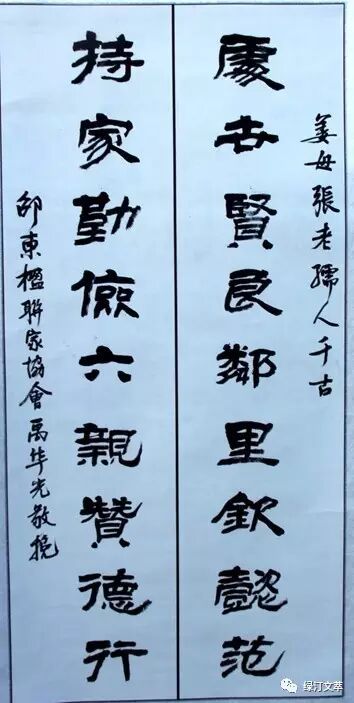 姜母張老孺人千古
處世賢良鄰里欽懿范
持家勤儉六親贊德行
邵東楹聯家協會禹华光敬挽
绿汀文萃